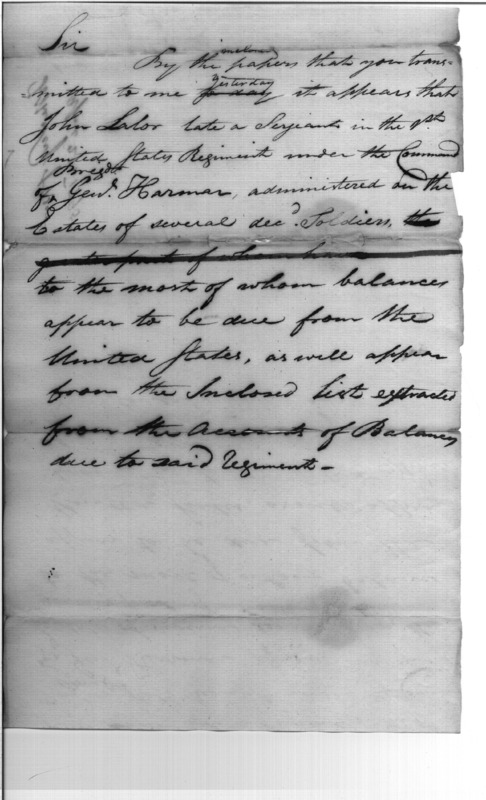 Sir
By the inclosed papers that you trans-
mitted to me to day yesterday it appears that
John Lalor late a Serjeant in the 1st
United States Regiment under the Command
of Brigdr Genl. Harmar, administered on the
Estates of several decd. Soldiers, the
greater part of whom ha
to the most of whom balances
appear to be due from the
United States, as will appear
from the Inclosed list extracted
from the Accounts of Balances
due to said Regiment -